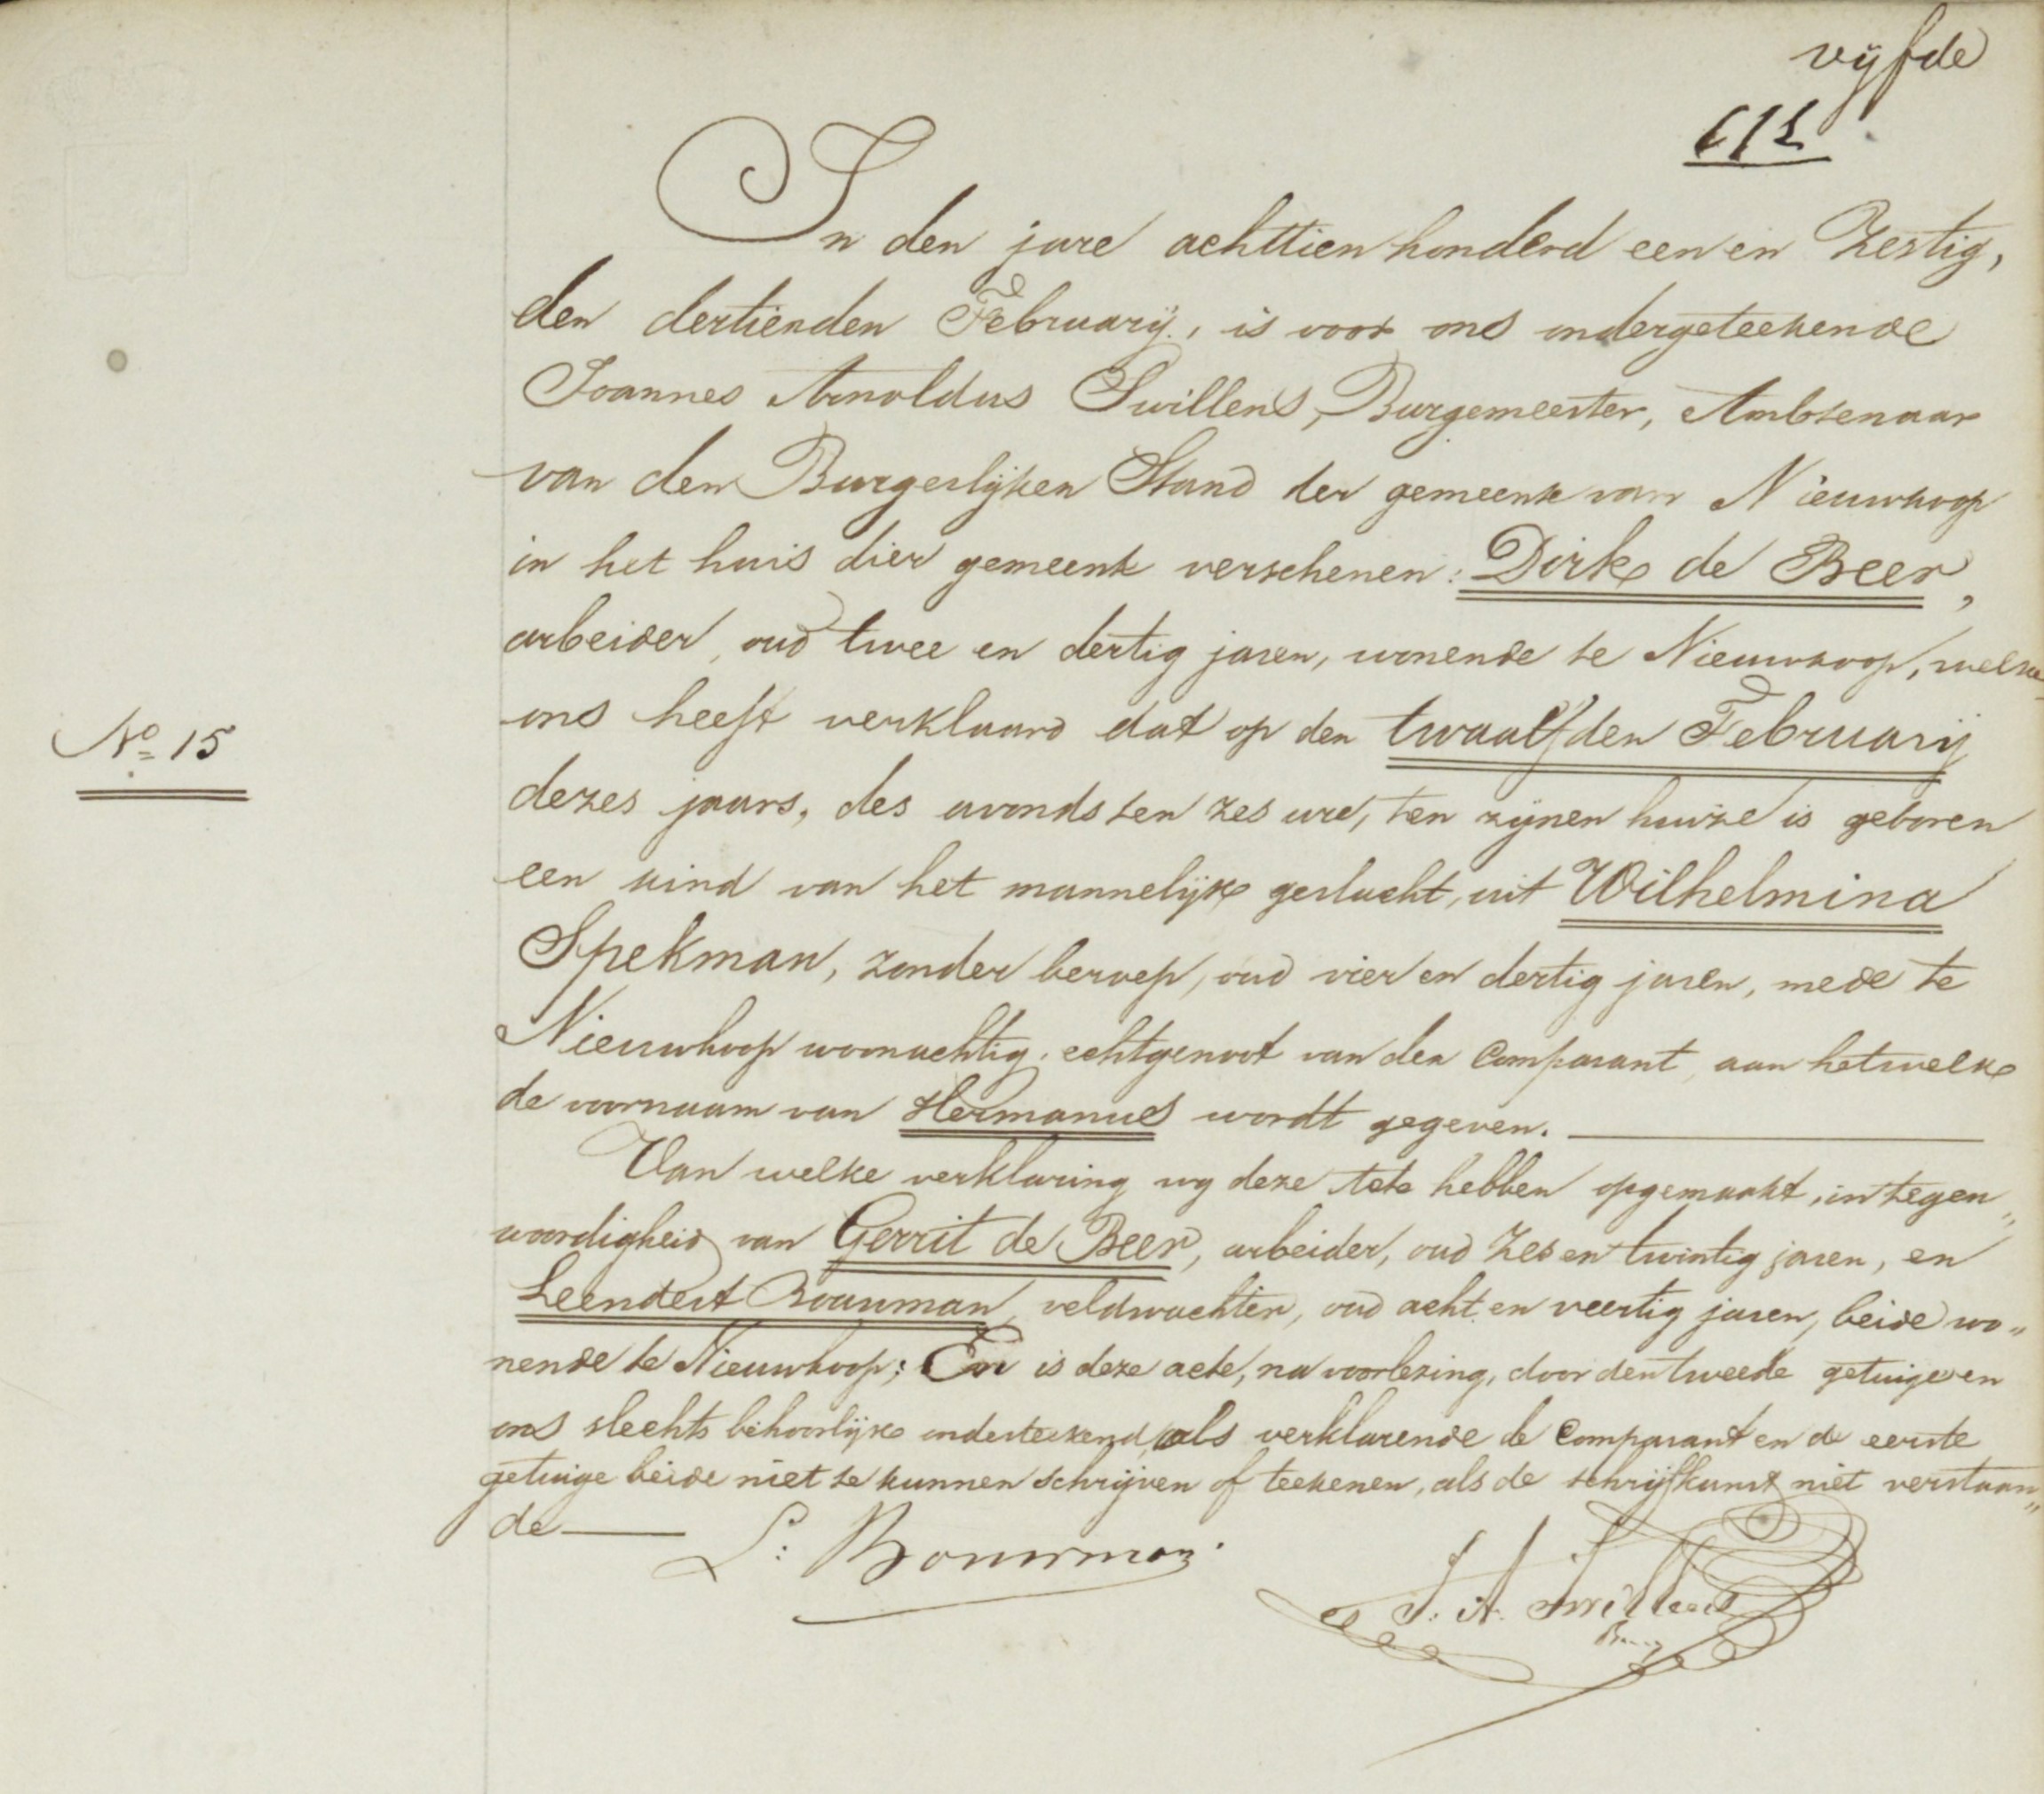 vijfde
In den jare achttien honderd een en zestig,
den dertienden Februarij, is voor ons ondergeteekende
Joannes Arnoldus Swillens, Burgemeester, Ambtenaar
van den Burgerlijken Stand der gemeente van Nieuwkoop
in het huis dier gemeente verschenen: Dirk de Beer,
arbeider, oud twee en dertig jaren, wonende te Nieuwkoop, welke
ons heeft verklaard dat op den twaalfden Februarij
dezes jaars, des avonds ten zes ure, ten zijnen huize is geboren
een kind van het mannelijk geslacht, uit Wilhelmina
Spekman, zonder beroep, oud vier en dertig jaren, mede te
Nieuwkoop woonachtig, echtgenoot van den Comparant, aan hetwelk
de voornaam van Hermanus wordt gegeven.
Van welke verklaring wy deze Acte hebben opgemaakt, in tegen„
woordigheid van Gerrit de Beer, arbeider, oud zes en twintig jaren, en
Leendert Bouwman, veldwachter, oud acht en veertig jaren, beide wo„
nende te Nieuwkoop; En is deze acte, na voorlezing, door den tweede getuige en
ons slechts behoorlijk onderteekend, als verklarende de Comparant en de eerste
getuige beide niet te kunnen schrijven of teekenen, als de schrijfkunst niet verstaan„
de
No 15
L: Bouwman.
J. A. Swillens
Burg